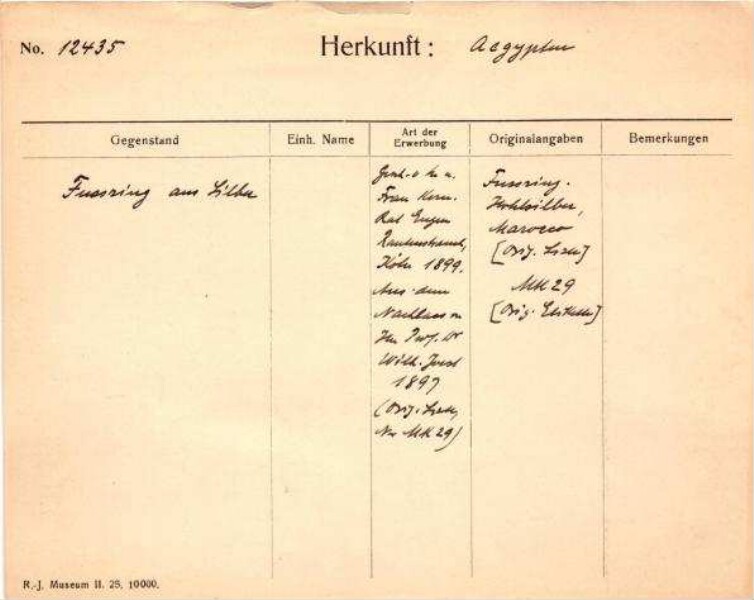 No. 12435 Herkunft: Aegypten
Gegenstand Einh. Name Art der Erwerbung Originalangaben Bemerkungen
Fussring aus Silber
Frau Kom.
Rat Eugen
Rautenstrauch,
Köln 1899.
Aus dem
Nachlass v.
Hn Prof. Dr
Wilh. Joest
1897
(Orig. Liste,
No MK 29)
Fussring.
Hohlsilber,
Marocco
[Orig. Liste]
MK 29
[Orig. Etikette]
R.-J. Museum II. 25. 10000.